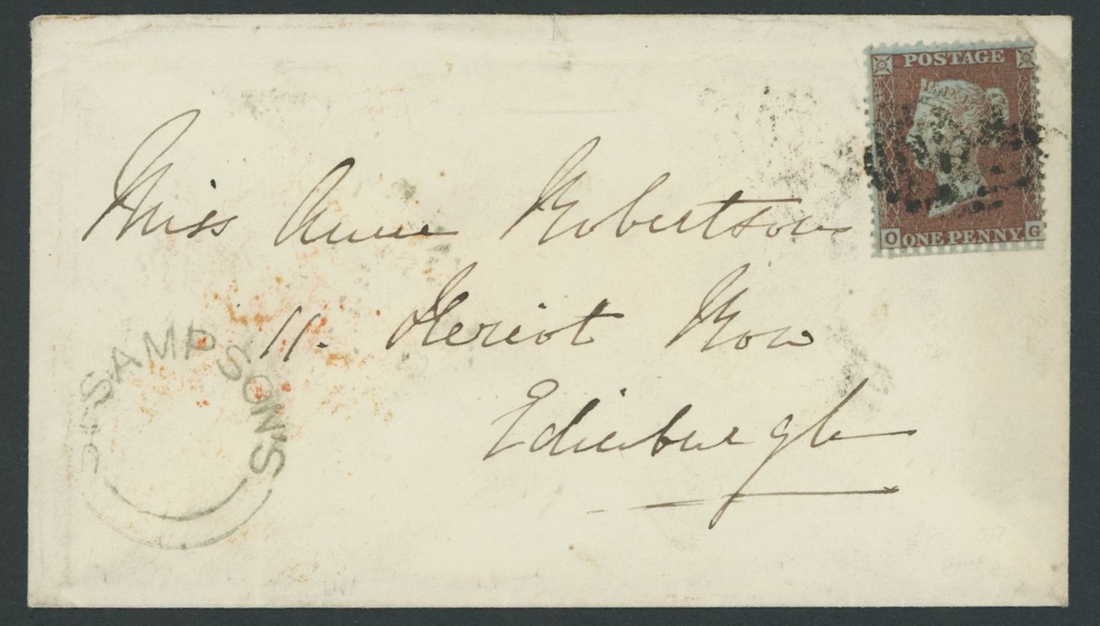 POSTAGE
O ONE PENNY G
Miss Anne Robertson
11. Heriot Row
Edinburgh
ST SAMPSONS